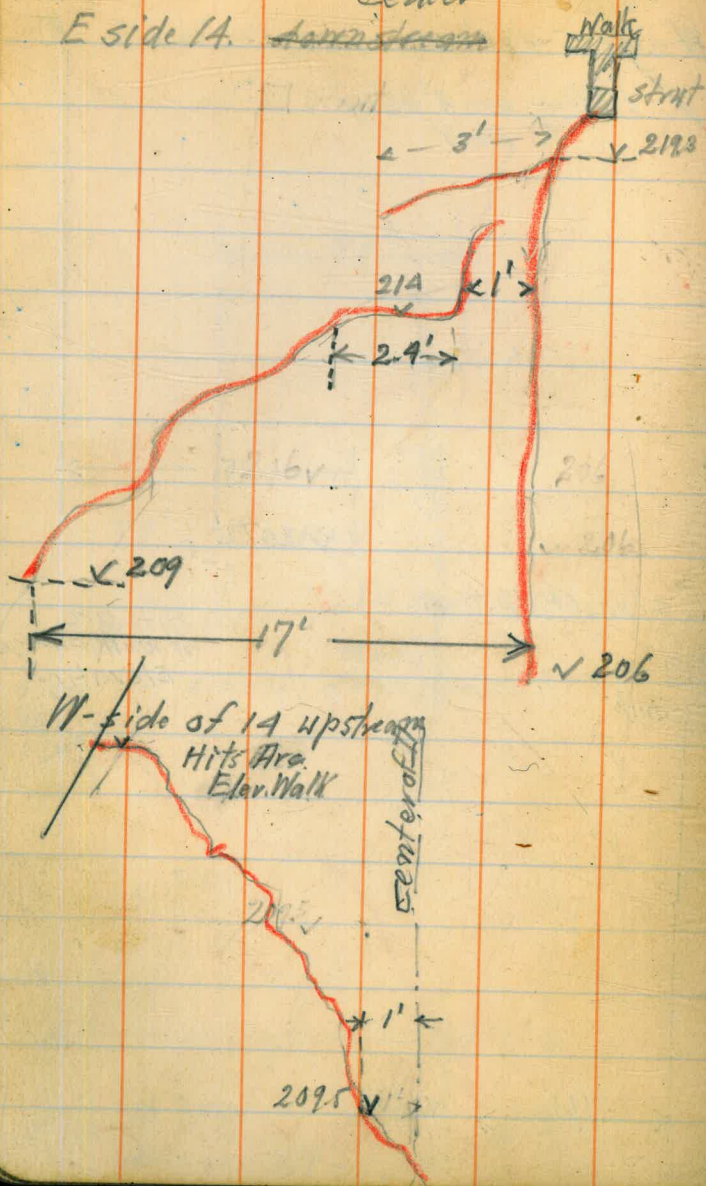 Center
E side 14. downstream
Walk
strut
3'
219.3
214
1'
2.4'
209
17'
206
W-side of 14 upstream
Hits Arc
Elev. Walk
Center of 17
1'
209.5
1'